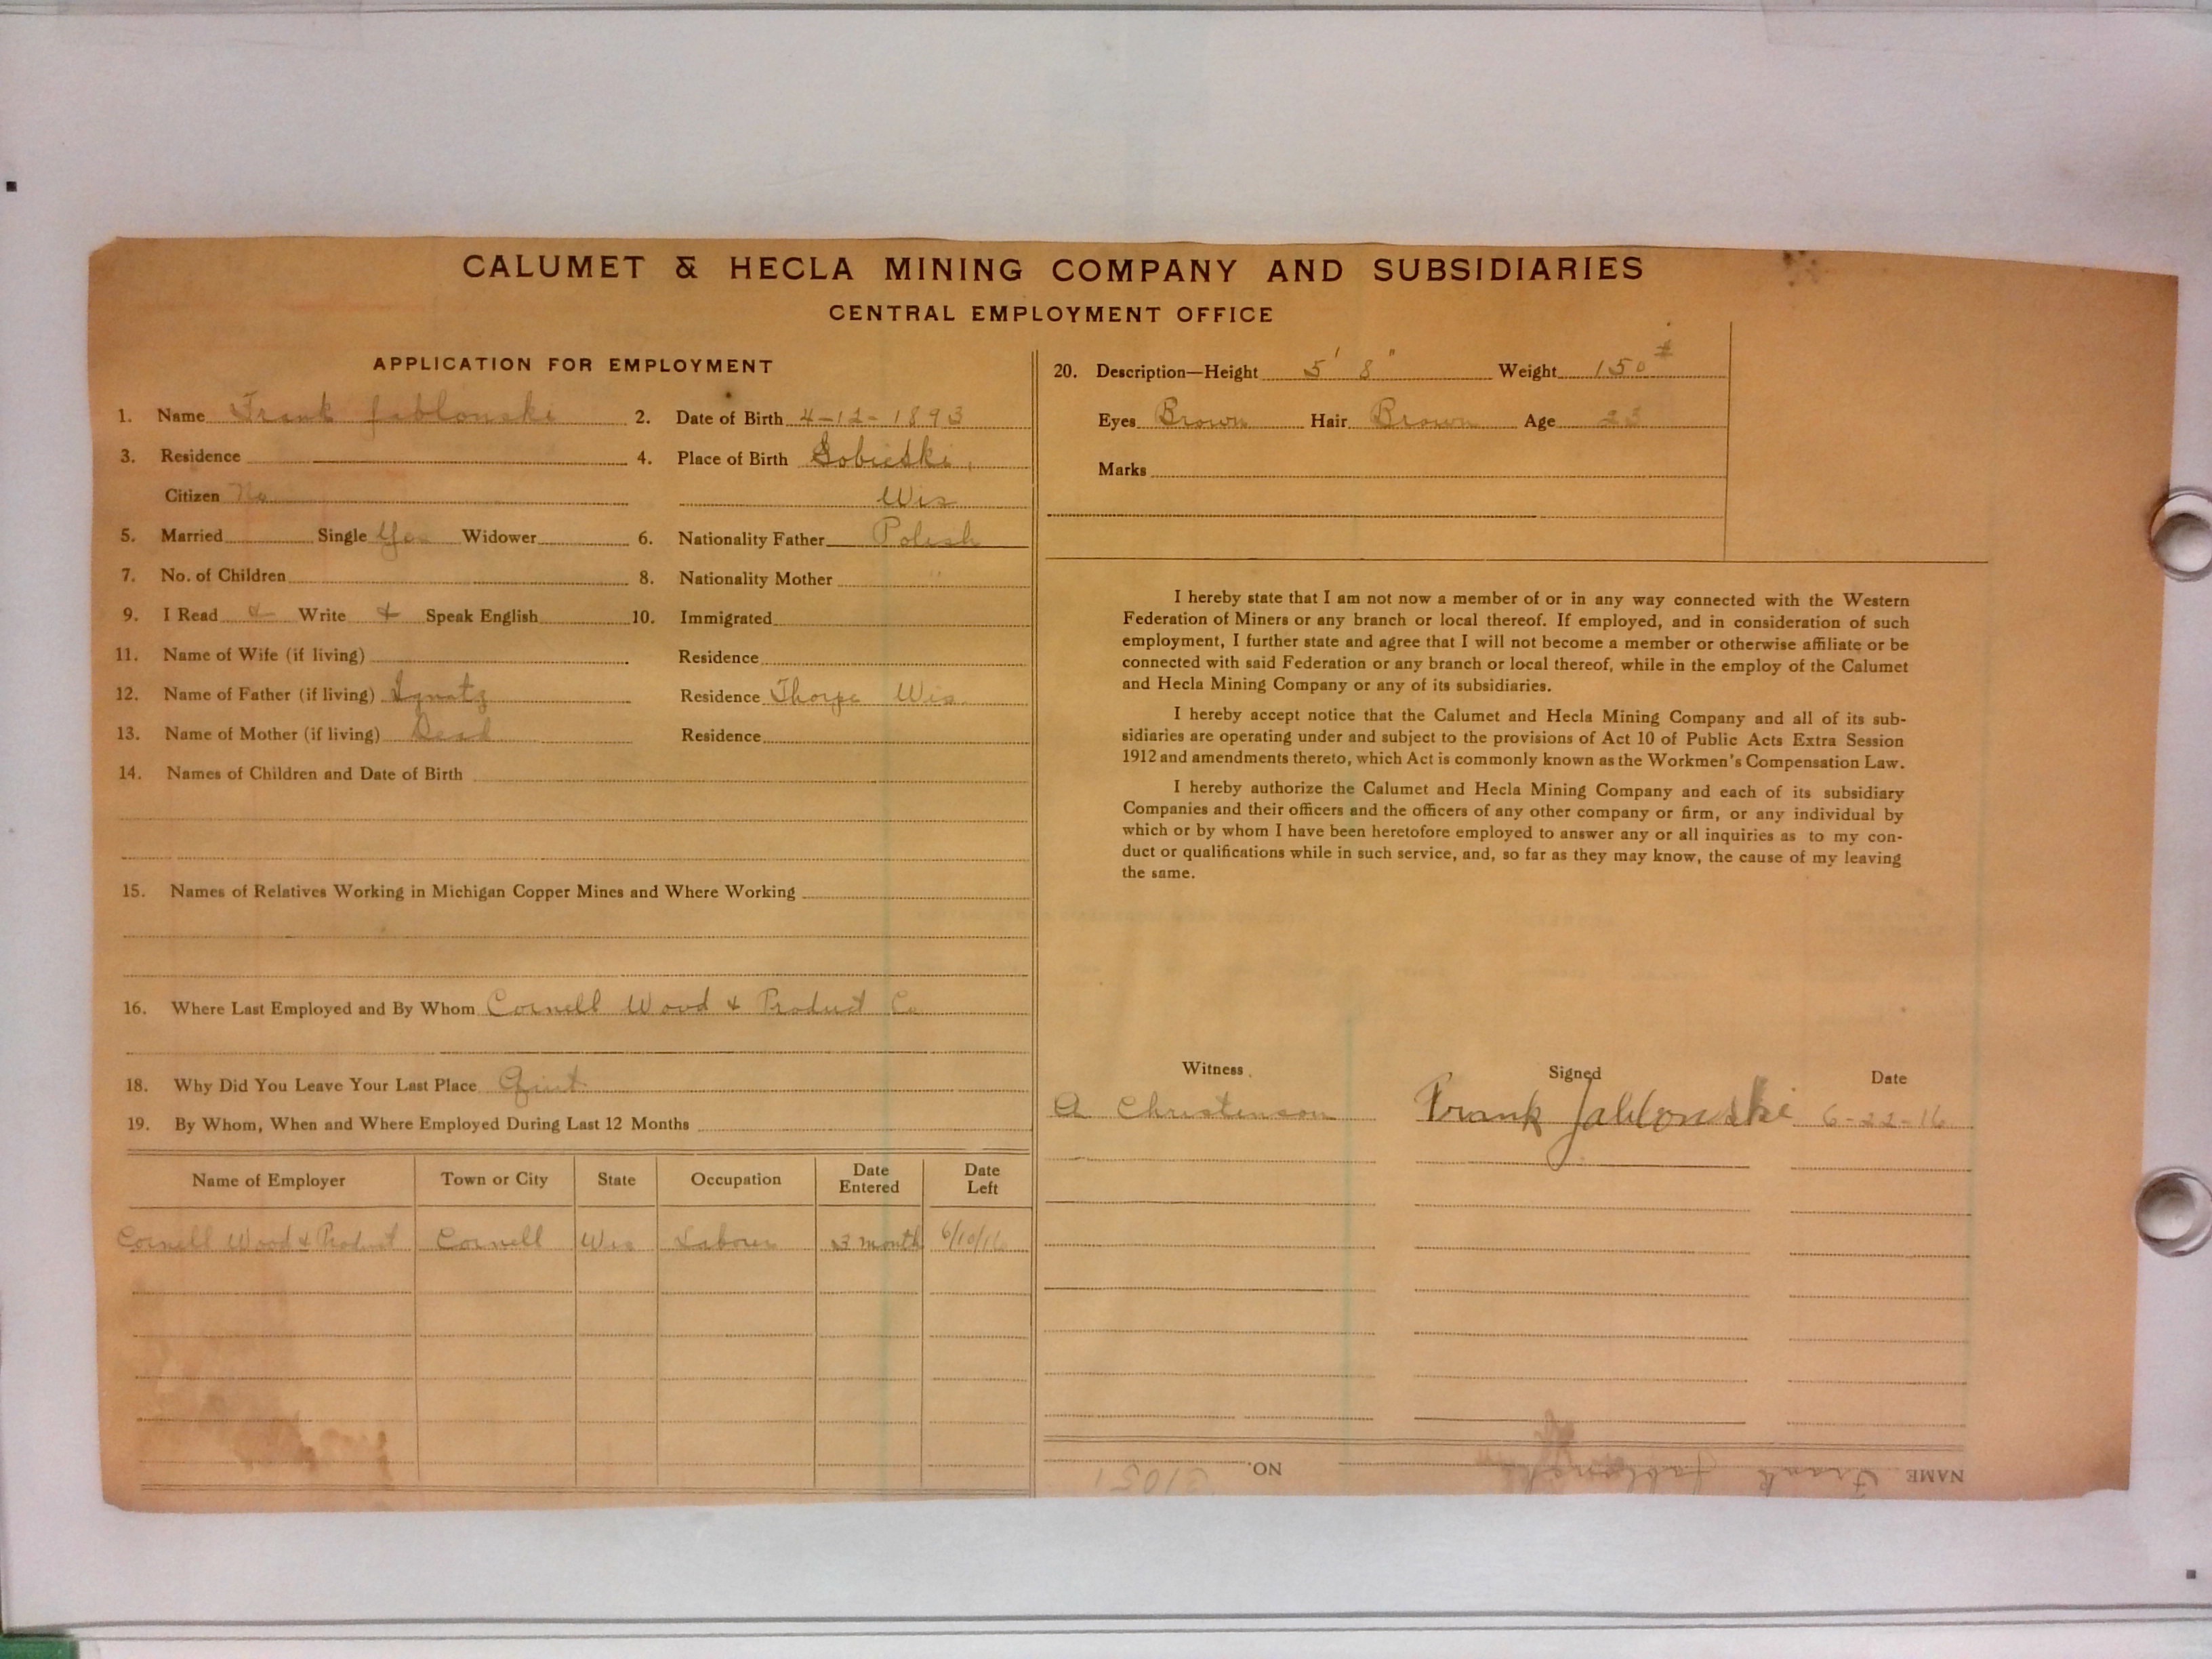 CALUMET & HECLA MINING COMPANY AND SUBSIDIARIES
CENTRAL EMPLOYMENT OFFICE
APPLICATION FOR EMPLOYMENT
1. Name Frank Jablonski 2. Date of Birth 4-12-1893
3. Residence 4. Place of Birth Sobieski,
Citizen No Wis
5. Married Single Yes Widower 6. Nationality Father Polish
7. No. of Children 8. Nationality Mother "
9. I Read & Write & Speak English 10. Immigrated
11. Name of Wife (if living) Residence
12. Name of Father (if living) Ignatz Residence Thorpe Wis.
13. Name of Mother (if living) Dead Residence
14. Names of Children and Date of Birth
15. Names of Relatives Working in Michigan Copper Mines and Where Working
16. Where Last Employed and By Whom Cornell Wood & Product Co
18. Why Did You Leave Your Last Place Quit
19. By Whom, When and Where Employed During Last 12 Months
Name of Employer Town or City State Occupation Date Entered Date Left
Cornell Wood & Product Cornell Wis Laborer 3 month 6/10/16
20. Description—Height 5' 8" Weight 150 #
Eyes Brown Hair Brown Age 23
Marks
I hereby state that I am not now a member of or in any way connected with the Western
Federation of Miners or any branch or local thereof. If employed, and in consideration of such
employment, I further state and agree that I will not become a member or otherwise affiliate or be
connected with said Federation or any branch or local thereof, while in the employ of the Calumet
and Hecla Mining Company or any of its subsidiaries.
I hereby accept notice that the Calumet and Hecla Mining Company and all of its sub-
sidiaries are operating under and subject to the provisions of Act 10 of Public Acts Extra Session
1912 and amendments thereto, which Act is commonly known as the Workmen's Compensation Law.
I hereby authorize the Calumet and Hecla Mining Company and each of its subsidiary
Companies and their officers and the officers of any other company or firm, or any individual by
which or by whom I have been heretofore employed to answer any or all inquiries as to my con-
duct or qualifications while in such service, and, so far as they may know, the cause of my leaving
the same.
Witness Signed Date
A Christenson Frank Jablonski 6-22-16
NAME Frank Jablonski NO. 31051